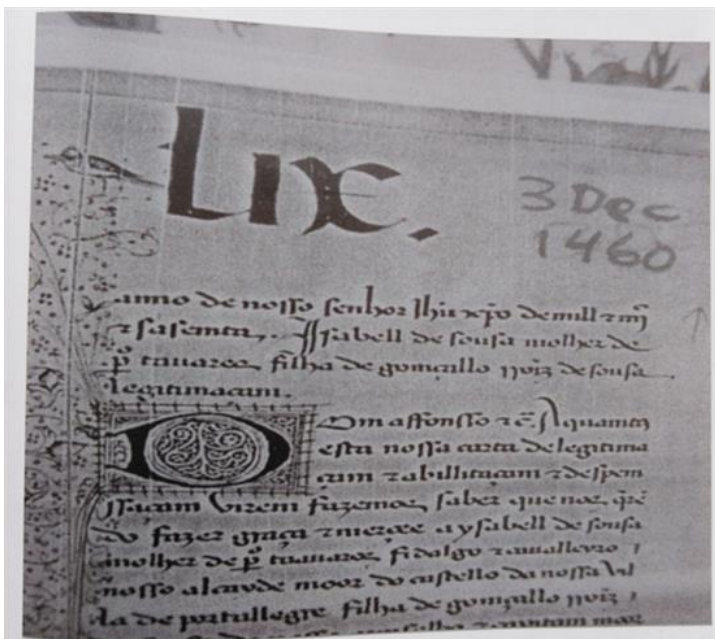 Lix.
3 Dec
1460
anno de nosso senhor Jhu xpo de mill e iiij
e sasemta. Issabell de sousa molher de
po tauares filha de gomçallo rroiz de sousa.
legitimacam.
Dom affonsso e c. A quamtos
esta nossa carta de legitima
cam e abillitaçam e despem
ssaçam virem fazemos saber que nos, qrẽ
do fazer graça e merçee a ysabell de sousa
molher de po tauares fidalgo caualleiro
nosso alcayde moor do castello da nossa vil
la de portallegre filha de gomçallo rroiz